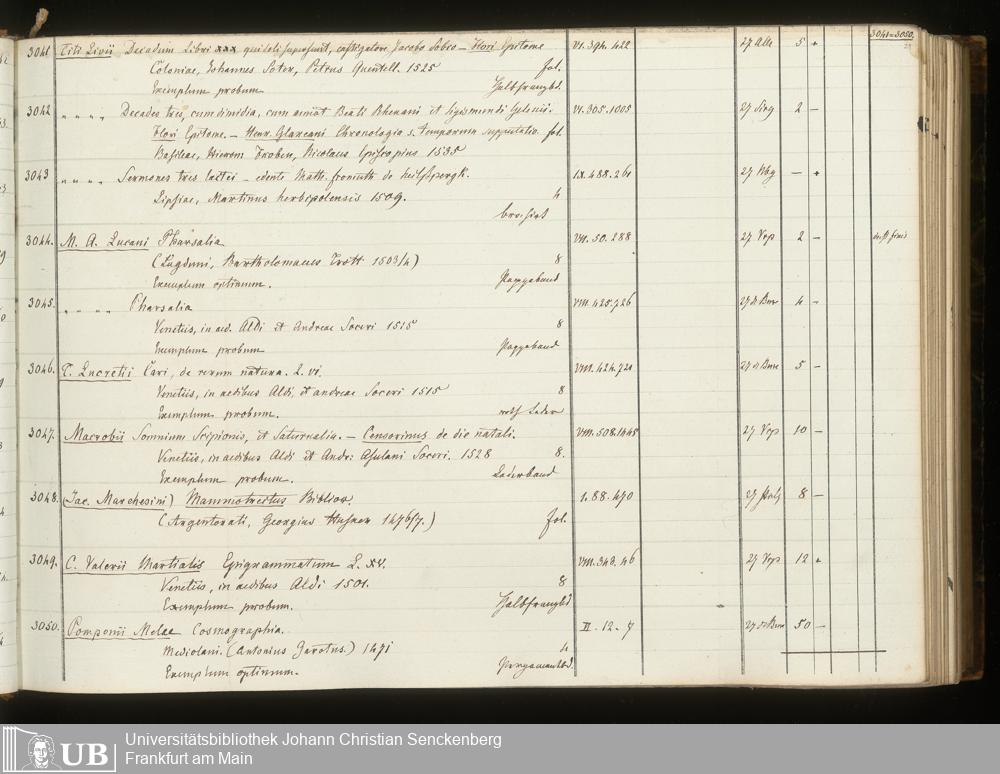 3041=3050.
3041 Titi Livii Decadum Libri xxx qui soli supersunt, castigatore Jacobo Sobio — Flori Epitome VI. 394. 422 27 5 +
Coloniae, Johannes Soter, Petrus Quentell. 1525 fol.
Exemplum probum Halbfranzbd.
3042 " " " " Decades tres, cum dimidia, cum annot Beati Rhenani et Sigismundi Gelenii. VI. 305. 1005 27 2 —
Flori Epitome. — Henr. Glareani Chronologia s. temporum supputatio. fol.
Basileae, Hieron Froben, Nicolaus Episcopius 1535
3043 " " " " Sermones tres lactei — edente Matth. IX. 488. 260 27 — +
Lipsiae, Martinus herbipolensis 1509. 4
broschirt
3044. M. A. Lucani Pharsalia VIII. 50. 288 27 2 —
(Lugduni, Bartholomaeus Trott 1503/4) 8
Exemplum optimum. Pappeband
3045. " " " " Pharsalia VIII. 425. 726 27 4 —
Venetiis, in aed. Aldi et Andreae Soceri 1515 8
Exemplum probum Pappeband
3046. T. Lucretii Cari, de rerum natura. L. vi. VIII. 424. 720 27 5 —
Venetiis, in aedibus Aldi, et andreae Soceri 1515 8
Exemplum probum. roth Leder
3047. Macrobii Somnium Scipionis, et Saturnalia. — Censorinus de die natali. VIII. 508. 1445 27 10 —
Venetiis, in aedibus Aldi et Andr: Asulani Soceri. 1528 8.
Exemplum probum. Lederband
3048. (Jac. Marchesini) Mammotrectus Bibliae 1. 88. 470 27 8 —
(Argentorati, Georgius Husner 1476/7.) fol.
3049. C. Valerii Martialis Epigrammatum L. XV. VIII. 343. 46 27 12 +
Venetiis, in aedibus Aldi 1501. 8
Exemplum probum. Halbfranzbd
3050. Pomponii Melae Cosmographia. II. 12. 7 27 50 —
Mediolani. (Antonius Zarotus.) 1471 4
Exemplum optimum. Pergamentbd.
UB Universitätsbibliothek Johann Christian Senckenberg
Frankfurt am Main